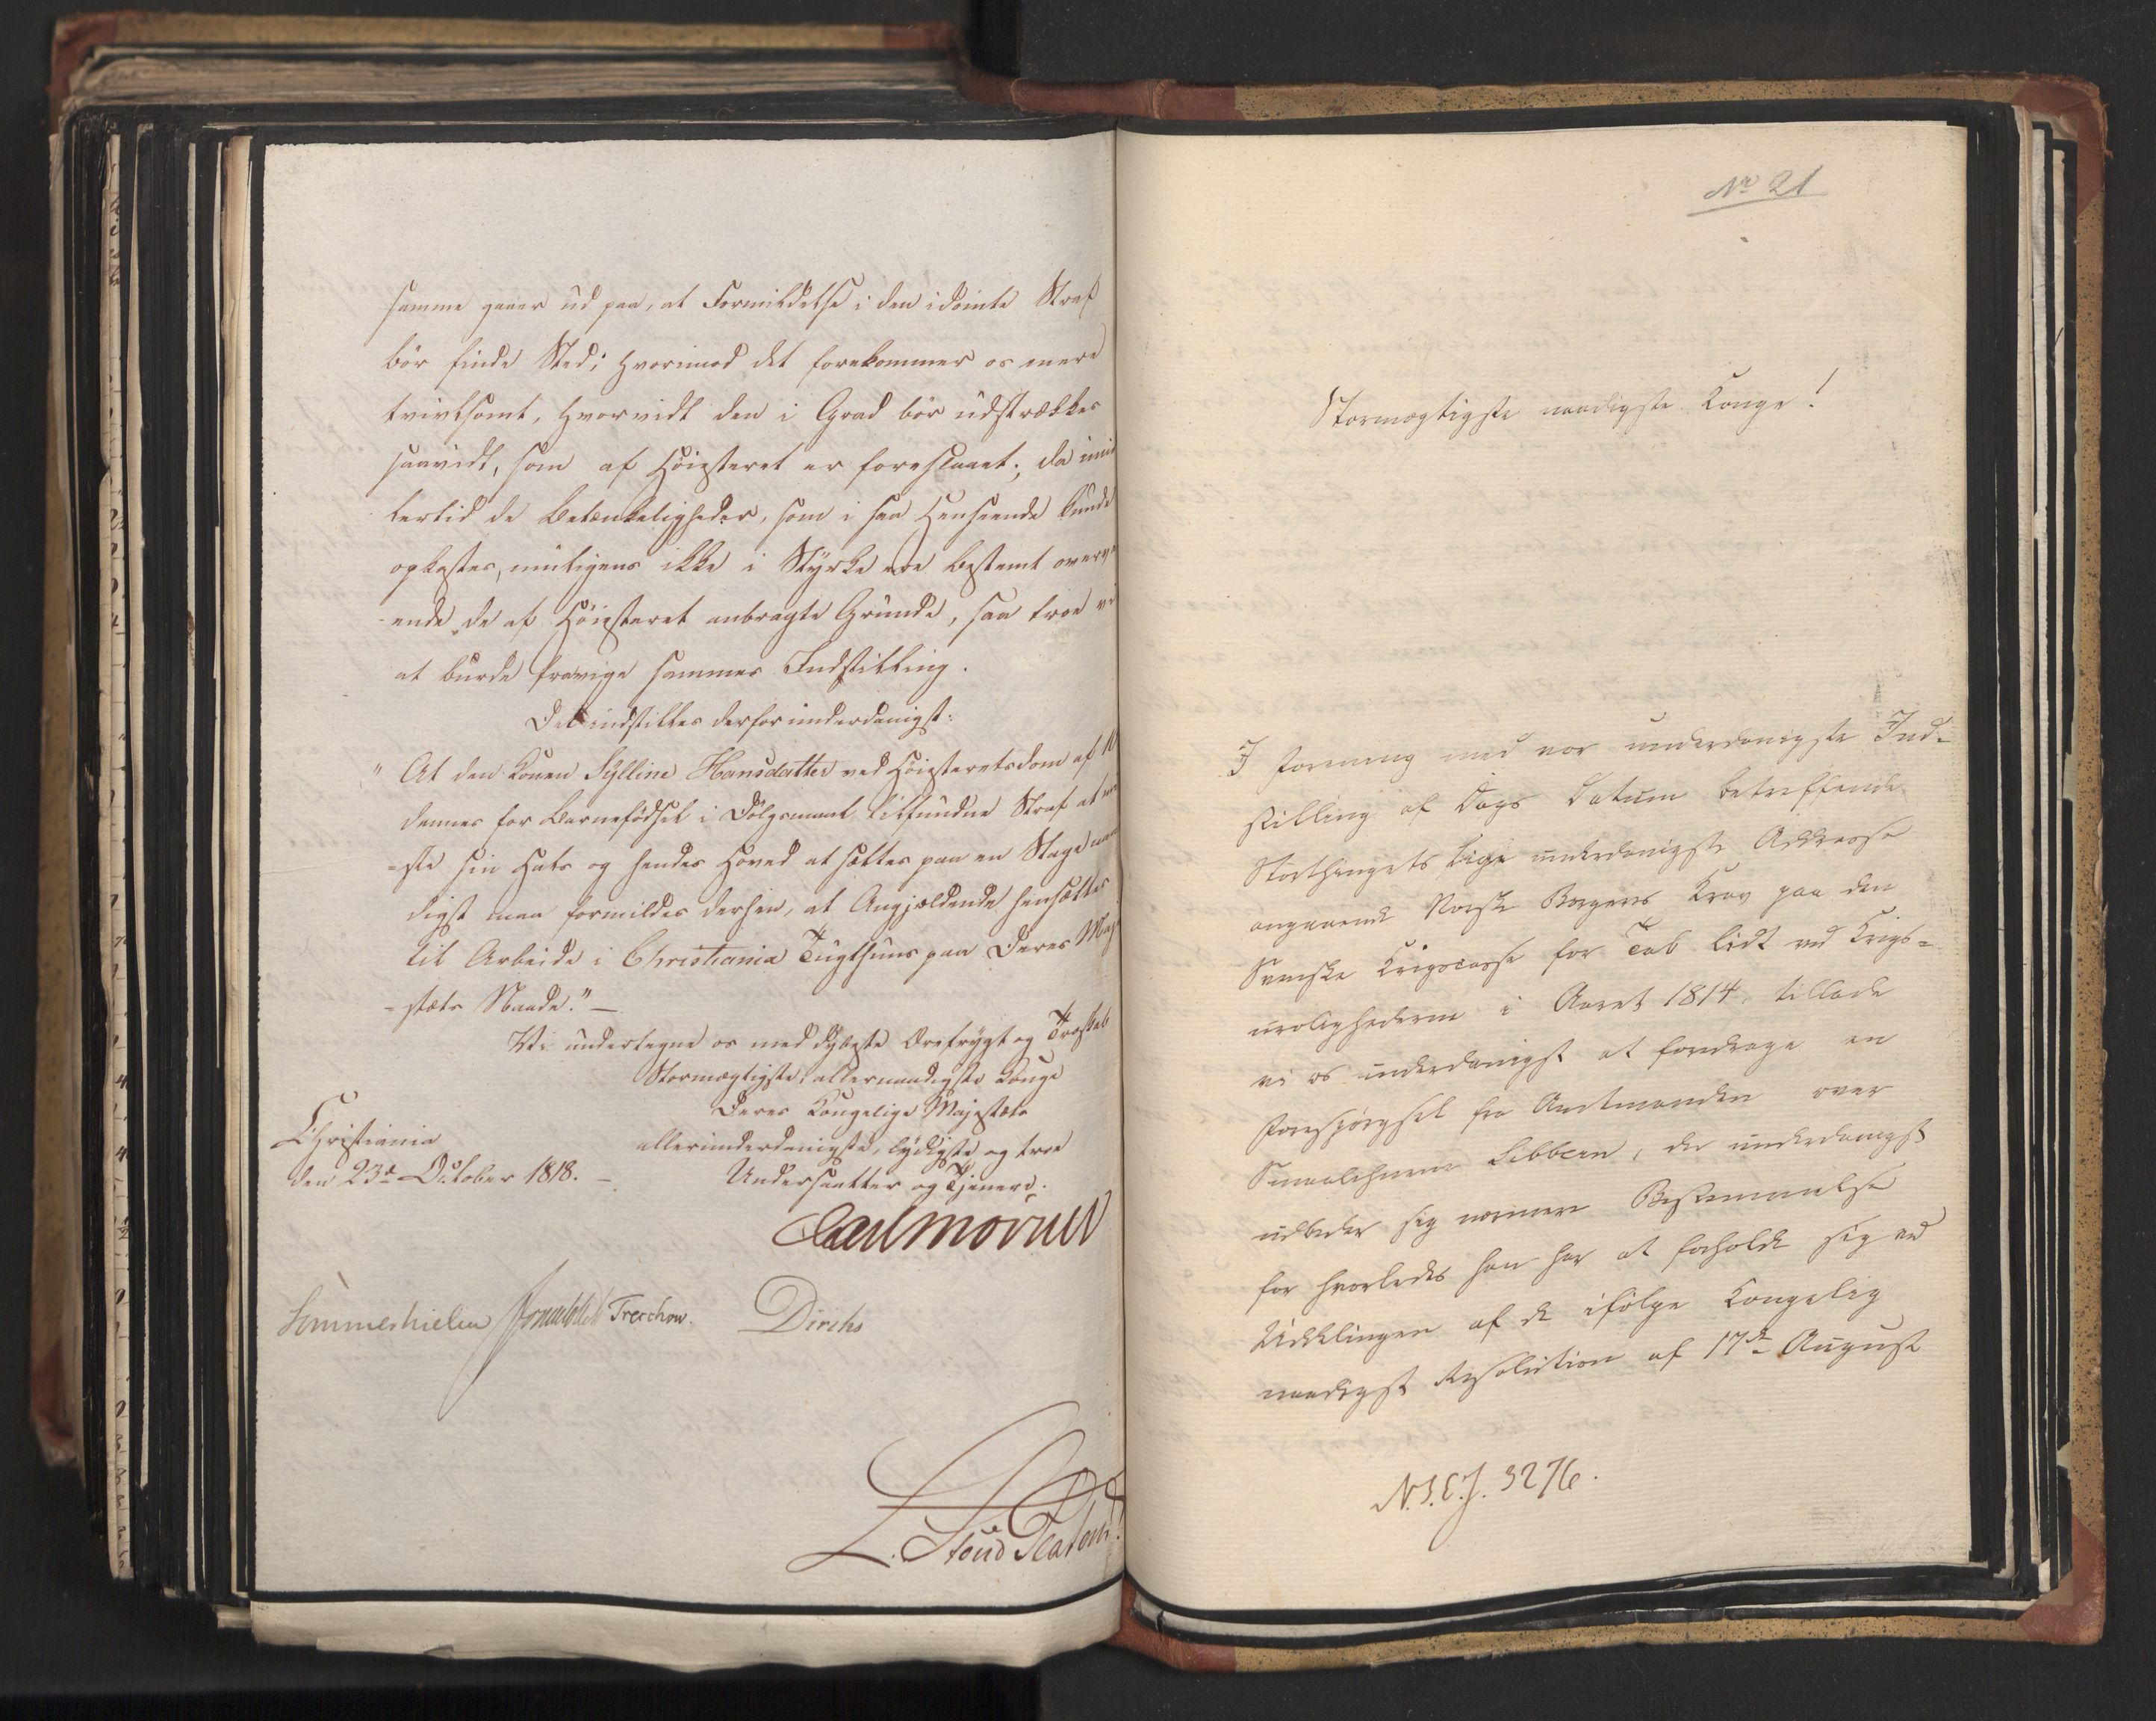 samme gaaer ud paa, at Formildelse i den idømte Straf
bør finde Sted; hvorimod det forekommer os mere
tvivlsomt, hvorvidt den i Grad bør udstrækkes
saavidt, som af Høiesteret er foreslaaet; da imid
lertid de Betænkeligheder, som i saa Henseende kunde
opkastes, muligens ikke i Styrke ere bestemt overve
ende de af Høiesteret anbragte Grunde, saa troe vi
at burde fravige sammes Indstilling.
Det indstilles derfor underdanigst:
" At den Konen Sylline Hansdatter ved Høiesteretsdom af 10
dennes for Barnefødsel i Dølgsmaal tilfundne Straf at m
=ste sin Hals og hendes Hoved at sættes paa en Stage naa
digst maa formildes derhen, at Angjældende hensættes
til Arbeide i Christiania Tugthuus paa Deres Maj
=stæts Naade." —
Vi undertegne os med dybeste Ærefrygt og Troskab
Stormægtigste, allernaadigste Konge
Deres Kongelige Majestæts
Christiania
allerunderdanigste, lydigste og troe
den 23de October 1818. —
Undersaatter og Tjenere.
Carl Mörner
Sommerhielm Jonas Collett Treschow. Diriks
L. Stoud Platou
No 21
Stormægtigste naadigste Konge!
I Forening med vor underdanigste Ind=
stilling af Dags Datum betreffende
Storthingets lige underdanigste Addresse
angaaende Norske Borgeres Krav paa den
Svenske Krigscasse for Tab lidt ved Krigs=
urolighederne i Aaret 1814, tillade
vi os underdanigst at foredrage en
Forespørgsel fra Amtmanden over
Smaalehnene Sibbern, der underdanigst
udbeder sig nærmere Bestemmelse
for hvorledes han har at forholde sig ved
Uddelingen af de ifølge Kongelig
naadigst Resolution af 17de August
N.I.C.J. 3276.